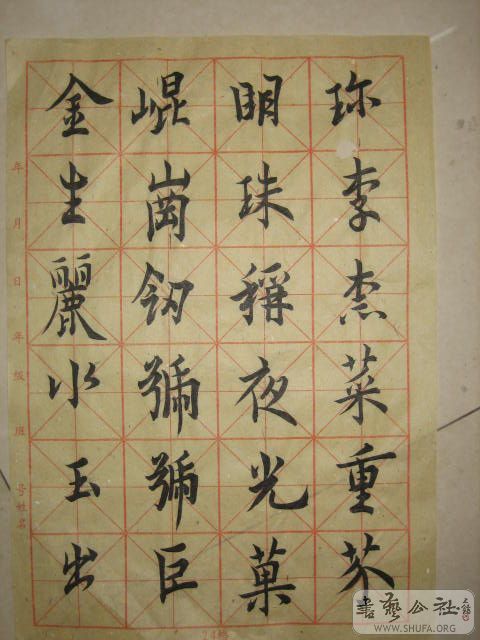 金生麗水玉出
崐崗釼號號巨
明珠稱夜光菓
珍李柰菜重芥
年 月 日 年级 班 号姓名
24格
書藝公社
WWW.SHUFA.ORG